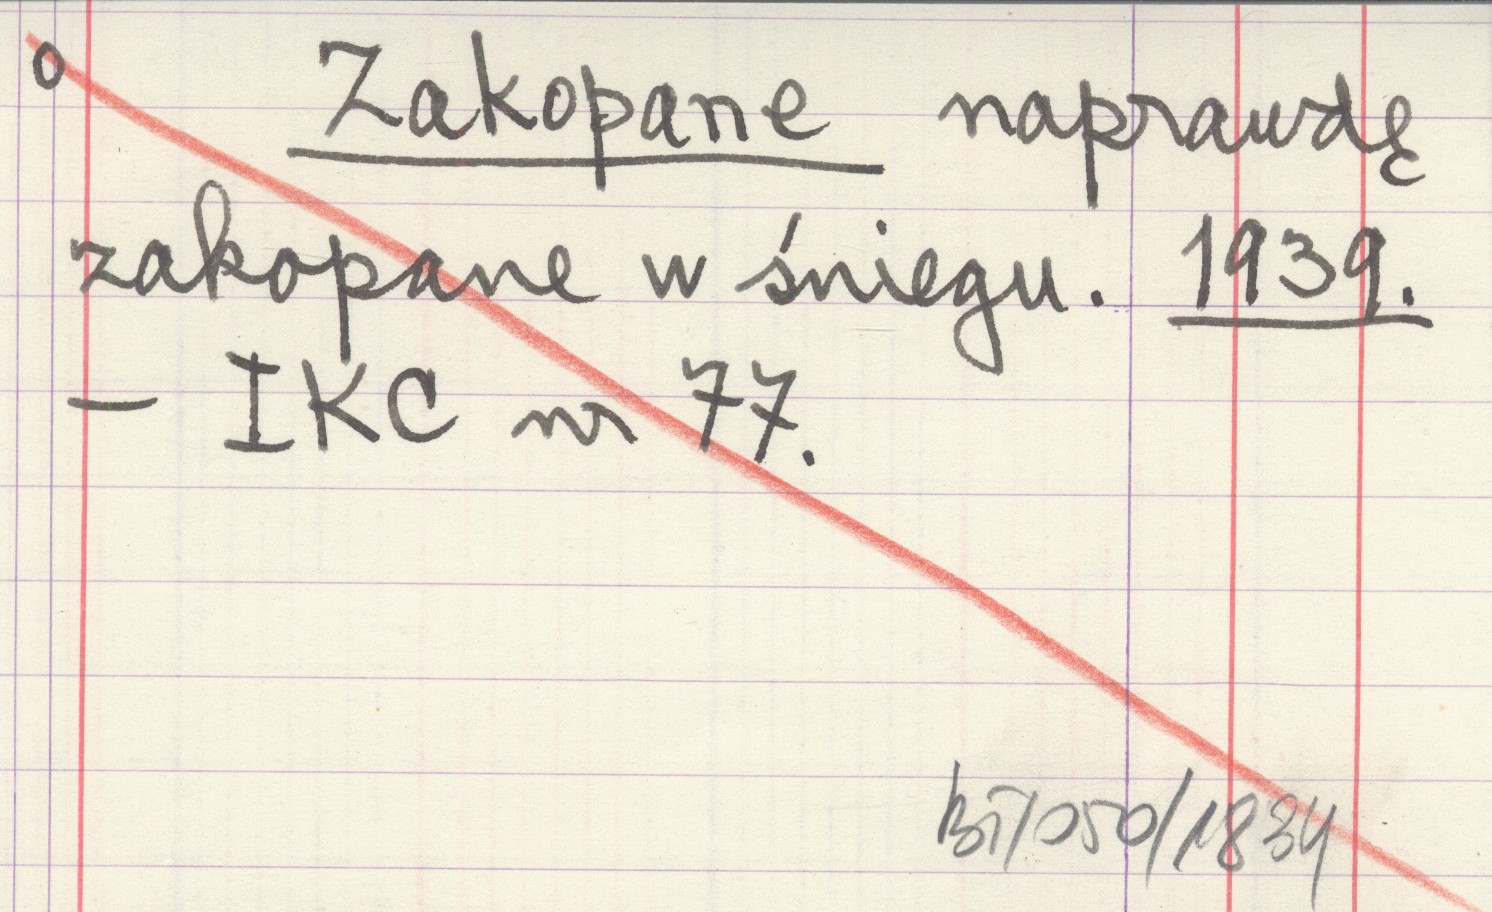 o Zakopane naprawdę
zakopane w śniegu. 1939.
- IKC nr 77.
BT/050/1834